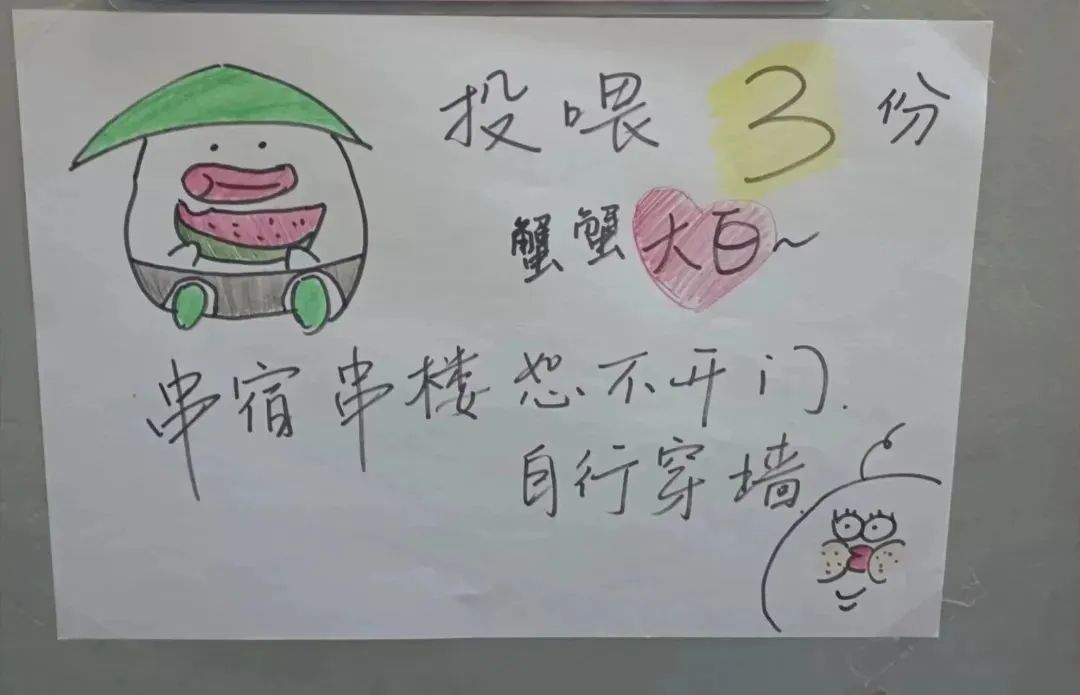 投喂3份
蟹蟹大白~
串宿串楼恕不开门.
自行穿墙.